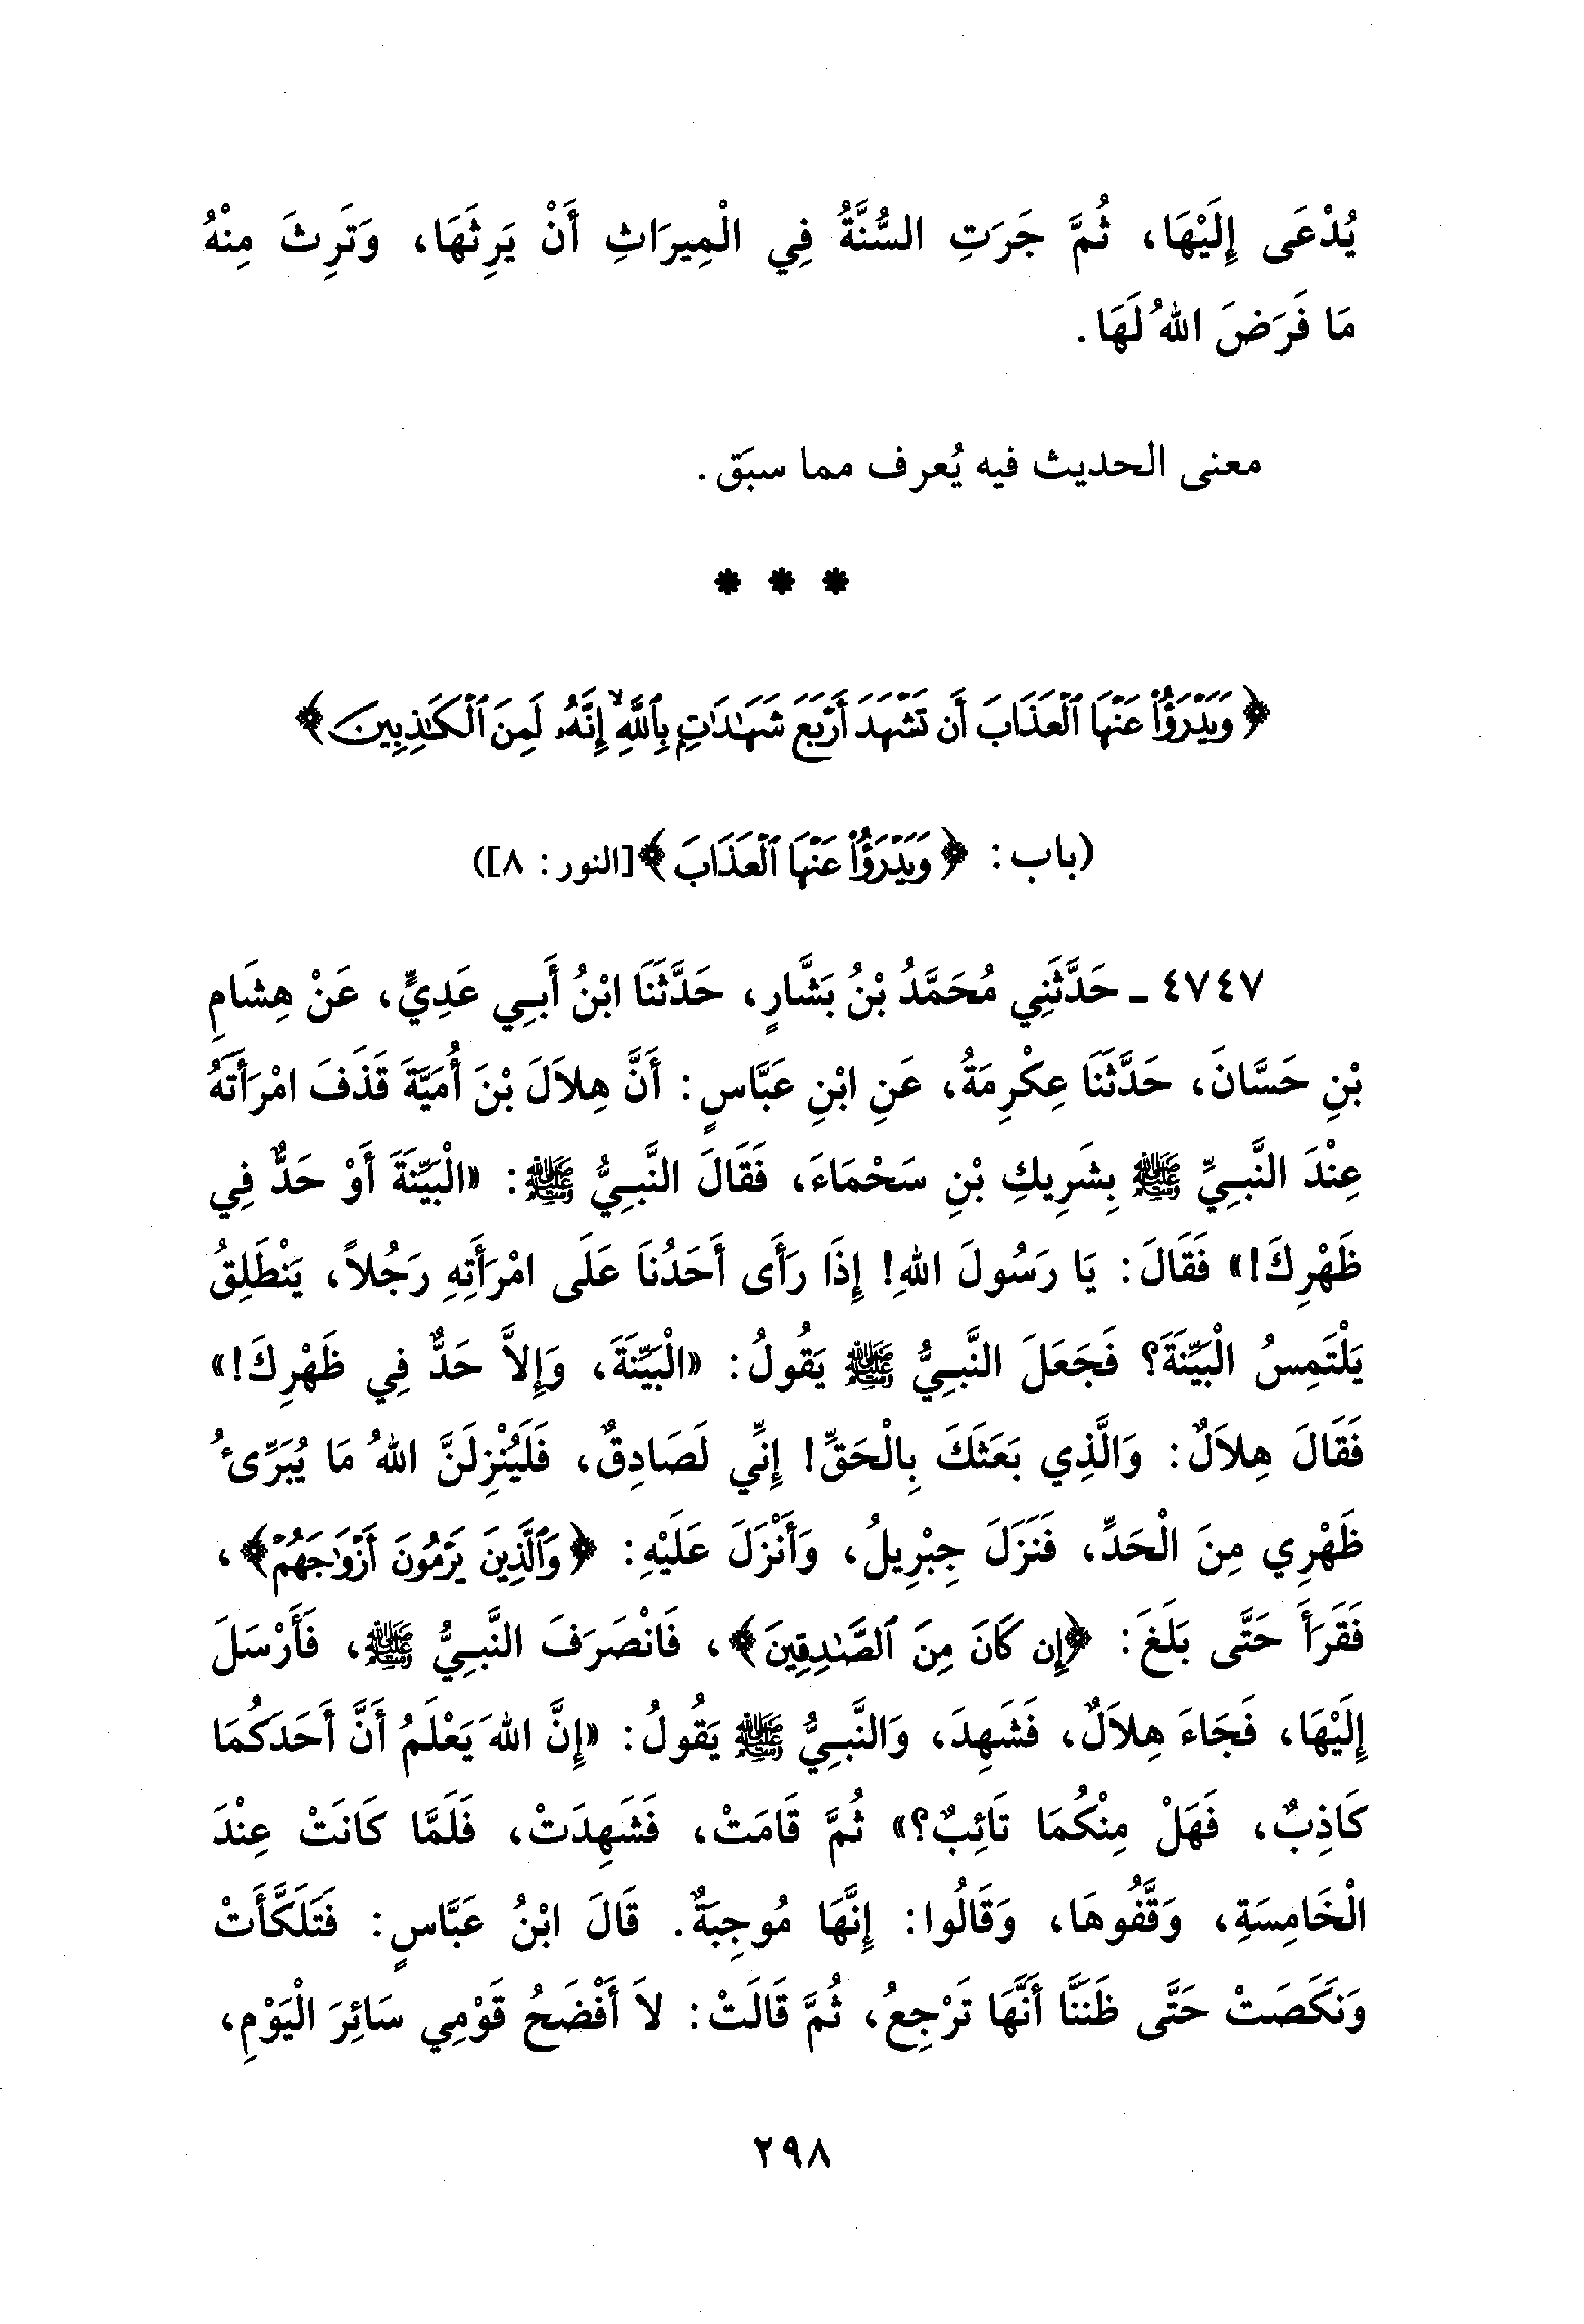 يُدْعَى إِلَيْهَا، ثُمَّ جَرَتِ السُّنَّةُ فِي الْمِيرَاثِ أَنْ يَرِثَهَا، وَتَرِثَ مِنْهُ
مَا فَرَضَ اللهُ لَهَا.
معنى الحديث فيه يُعرف مما سبَق.
* * *
﴿وَيَدْرَؤُا۟ عَنْهَا ٱلْعَذَابَ أَن تَشْهَدَ أَرْبَعَ شَهَٰدَٰتٍۭ بِٱللَّهِ ۙ إِنَّهُۥ لَمِنَ ٱلْكَٰذِبِينَ﴾
(باب: ﴿وَيَدْرَؤُا۟ عَنْهَا ٱلْعَذَابَ﴾[النور: ٨])
٤٧٤٧ ـ حَدَّثَنِي مُحَمَّدُ بْنُ بَشَّارٍ، حَدَّثَنَا ابْنُ أَبِي عَدِيٍّ، عَنْ هِشَامِ
بْنِ حَسَّانَ، حَدَّثَنَا عِكْرِمَةُ، عَنِ ابْنِ عَبَّاسٍ: أَنَّ هِلاَلَ بْنَ أُمَيَّةَ قَذَفَ امْرَأَتَهُ
عِنْدَ النَّبِيِّ ﷺ بِشَرِيكِ بْنِ سَحْمَاءَ، فَقَالَ النَّبِيُّ ﷺ: «الْبَيِّنَةَ أَوْ حَدٌّ فِي
ظَهْرِكَ!» فَقَالَ: يَا رَسُولَ اللهِ! إِذَا رَأَى أَحَدُنَا عَلَى امْرَأَتِهِ رَجُلاً، يَنْطَلِقُ
يَلْتَمِسُ الْبَيِّنَةَ؟ فَجَعَلَ النَّبِيُّ ﷺ يَقُولُ: «الْبَيِّنَةَ، وَإِلاَّ حَدٌّ فِي ظَهْرِكَ!»
فَقَالَ هِلاَلٌ: وَالَّذِي بَعَثَكَ بِالْحَقِّ! إِنِّي لَصَادِقٌ، فَلَيُنْزِلَنَّ اللهُ مَا يُبَرِّئُ
ظَهْرِي مِنَ الْحَدِّ، فَنَزَلَ جِبْرِيلُ، وَأَنْزَلَ عَلَيْهِ: ﴿وَٱلَّذِينَ يَرْمُونَ أَزْوَٰجَهُمْ﴾،
فَقَرَأَ حَتَّى بَلَغَ: ﴿إِن كَانَ مِنَ ٱلصَّٰدِقِينَ﴾، فَانْصَرَفَ النَّبِيُّ ﷺ، فَأَرْسَلَ
إِلَيْهَا، فَجَاءَ هِلاَلٌ، فَشَهِدَ، وَالنَّبِيُّ ﷺ يَقُولُ: «إِنَّ اللهَ يَعْلَمُ أَنَّ أَحَدَكُمَا
كَاذِبٌ، فَهَلْ مِنْكُمَا تَائِبٌ؟» ثُمَّ قَامَتْ، فَشَهِدَتْ، فَلَمَّا كَانَتْ عِنْدَ
الْخَامِسَةِ، وَقَّفُوهَا، وَقَالُوا: إِنَّهَا مُوجِبَةٌ. قَالَ ابْنُ عَبَّاسٍ: فَتَلَكَّأَتْ
وَنَكَصَتْ حَتَّى ظَنَنَّا أَنَّهَا تَرْجِعُ، ثُمَّ قَالَتْ: لاَ أَفْضَحُ قَوْمِي سَائِرَ الْيَوْمِ،
٢٩٨